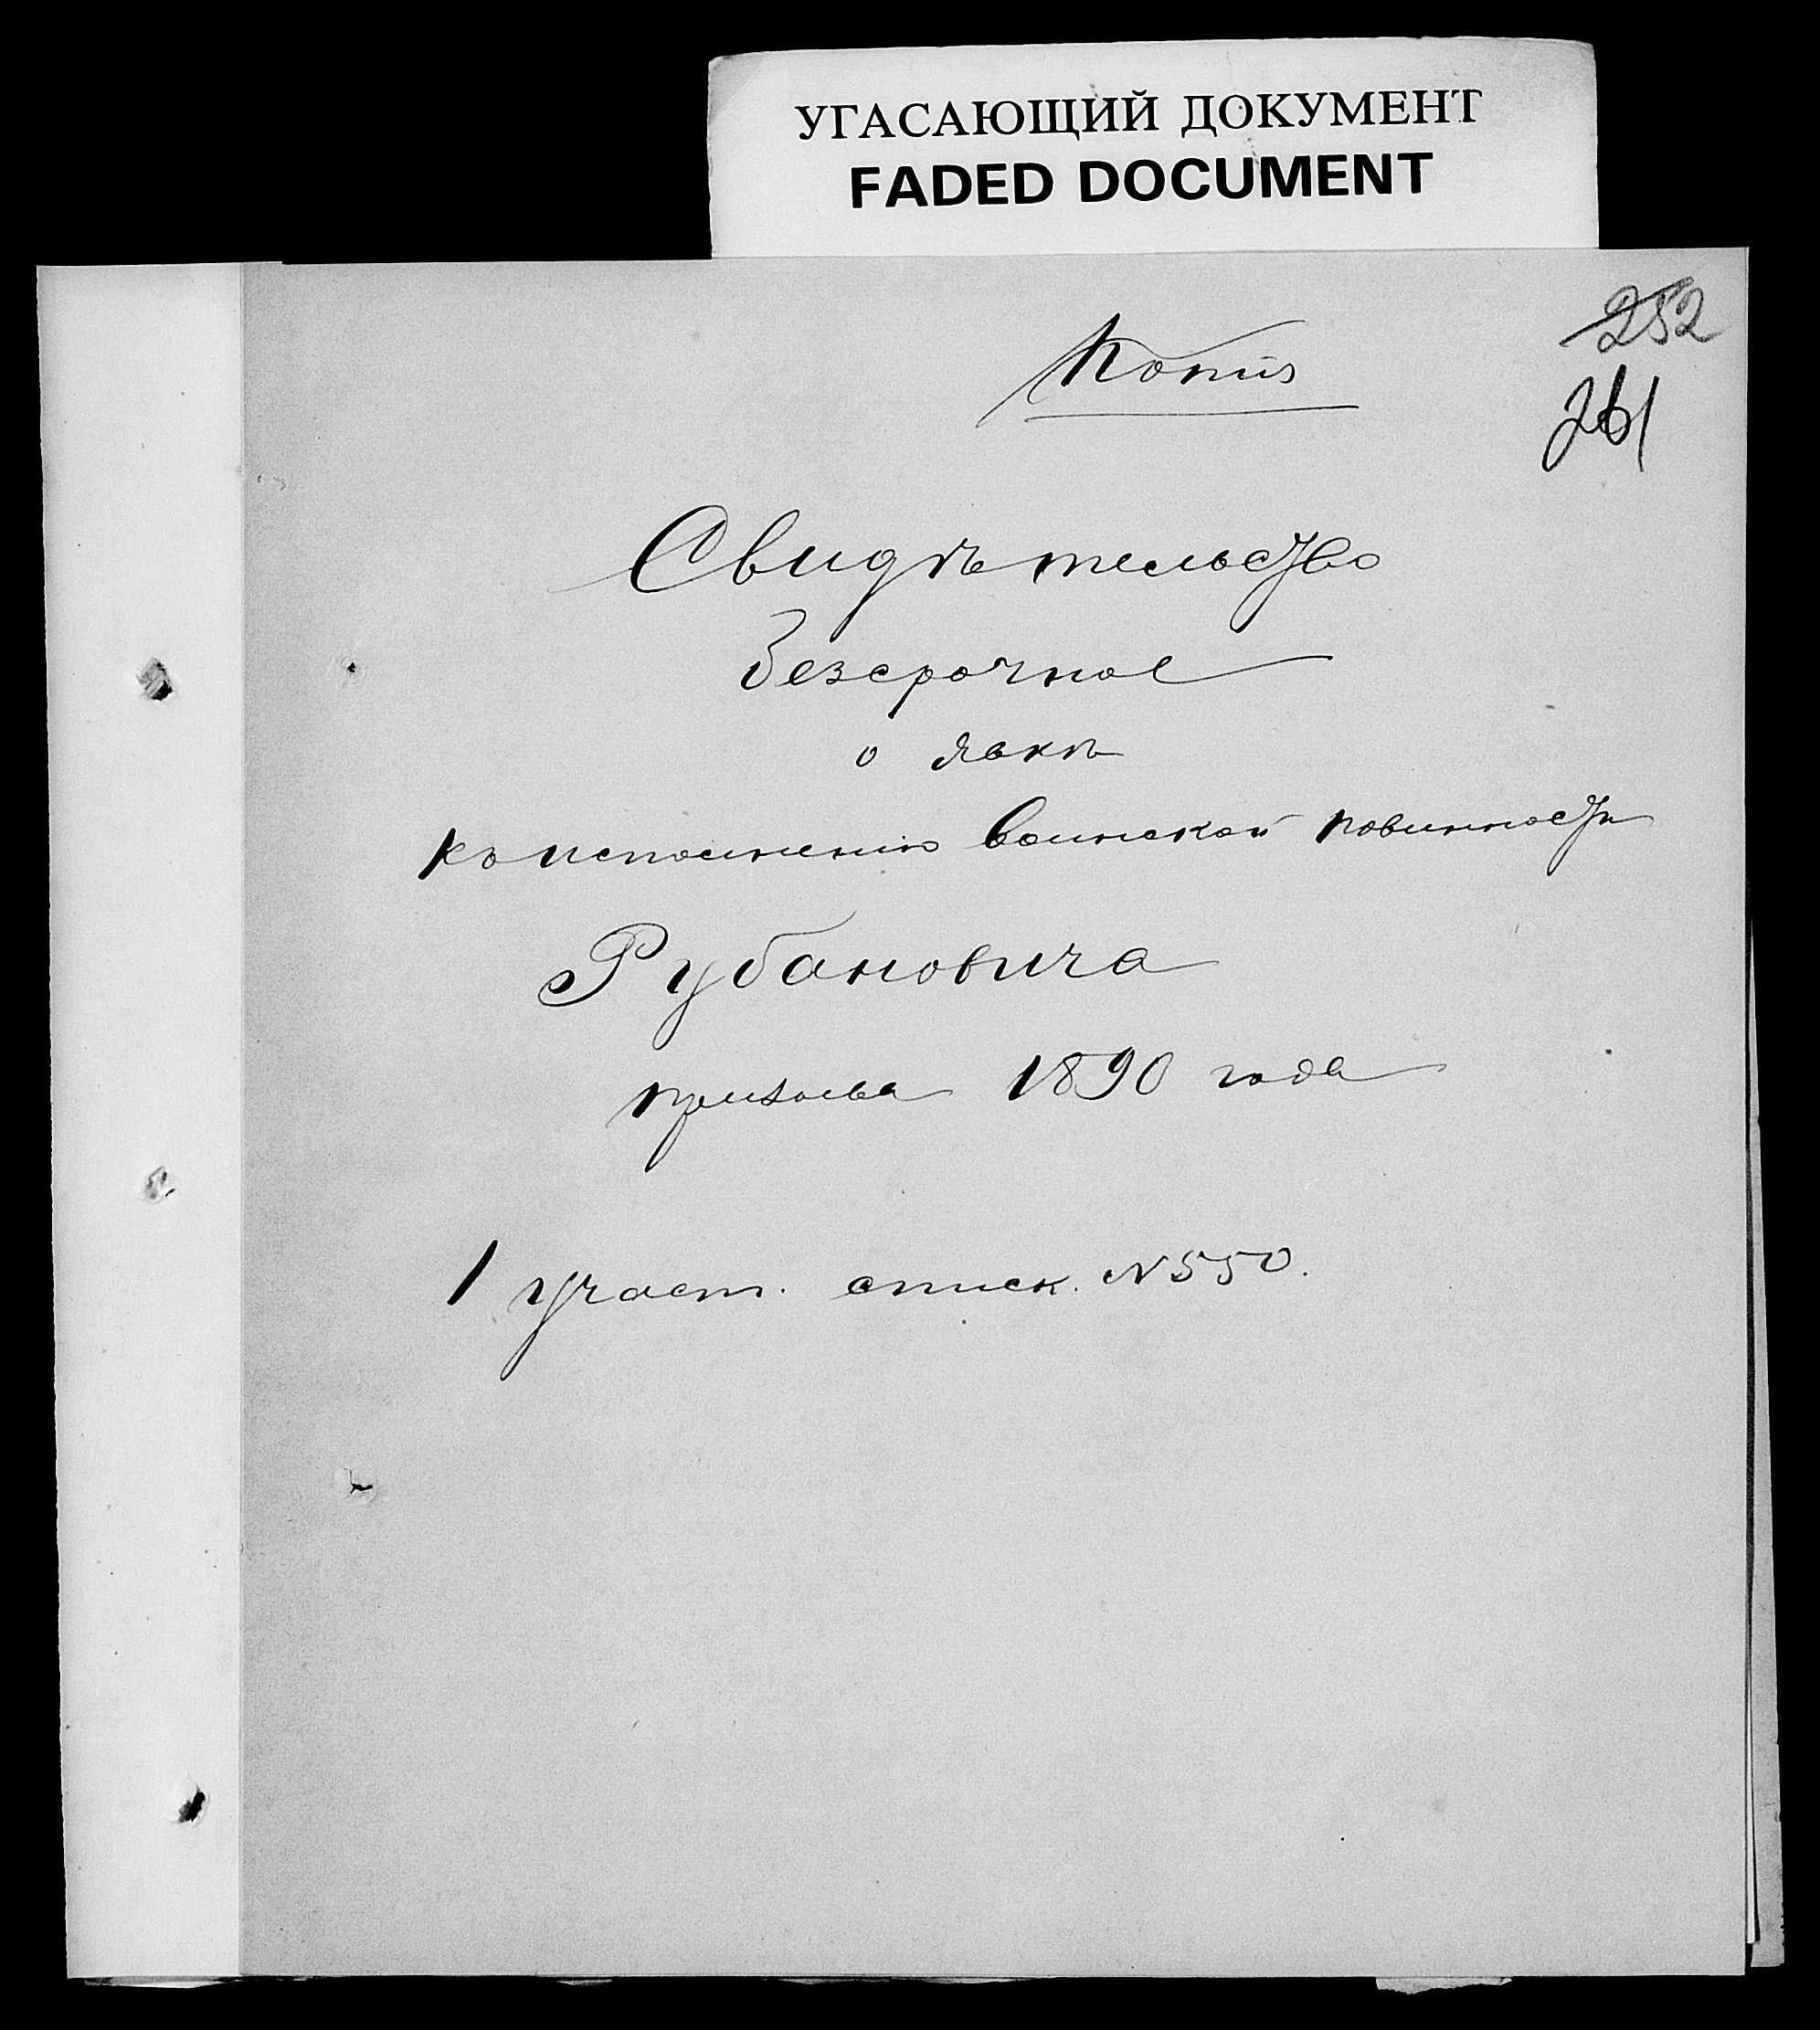 УГАСАЮЩИЙ ДОКУМЕНТ
FADED DOCUMENT
252
261
Копія
Свидѣтельство
безсрочное
о явкѣ
къ исполненію воинской повинности
Рубановича
призыва 1890 года
1 участ. списк. № 550.